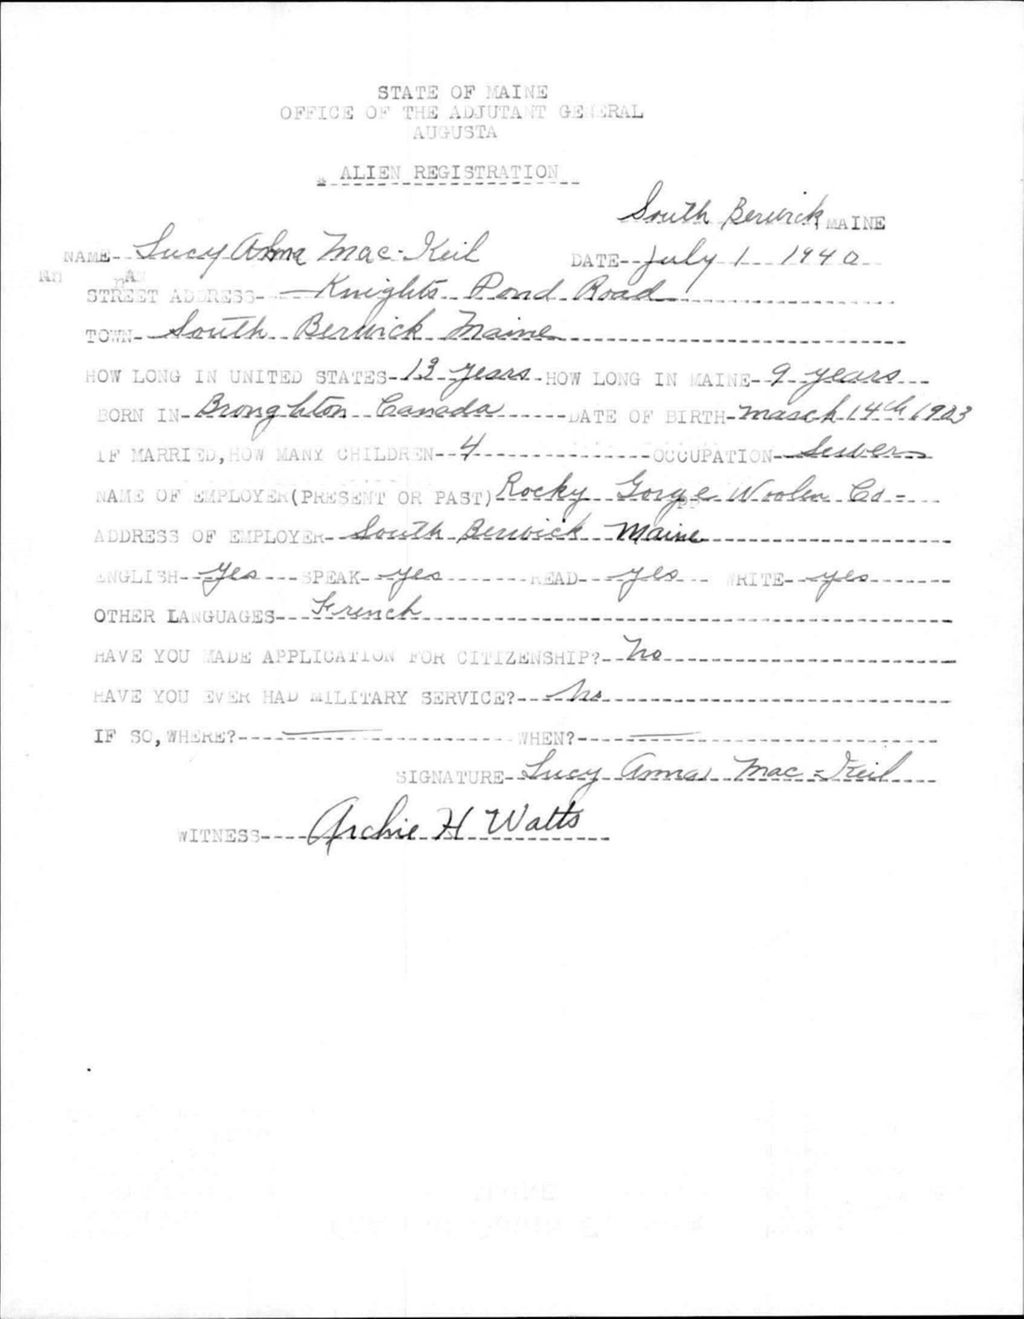 STATE OF MAINE
OFFICE OF THE ADJUTANT GENERAL
AUGUSTA
ALIEN REGISTRATION
South Berwick, MAINE
NAME--Lucy Anna Mac-Keil DATE--July 1 1940
STREET ADDRESS---Knights Pond Road
TOWN-South Berwick Maine
HOW LONG IN UNITED STATES-13 years-HOW LONG IN MAINE-9 years
BORN IN-Broughton Canada-----DATE OF BIRTH-March 14th 1903
IF MARRIED, HOW MANY CHILDREN--4----------------OCCUPATION-Sewer
NAME OF EMPLOYER(PRESENT OR PAST) Rocky Gorge Woolen Co-
ADDRESS OF EMPLOYER--South Berwick Maine
ENGLISH--yes----SPEAK--yes-------READ---yes--- WRITE--yes
OTHER LANGUAGES---French
HAVE YOU MADE APPLICATION FOR CITIZENSHIP?--No
HAVE YOU EVER HAD MILITARY SERVICE?---No
IF SO, WHERE?--------------------WHEN?----
SIGNATURE-Lucy Anna Mac-Keil
WITNESS----Archie H Watts